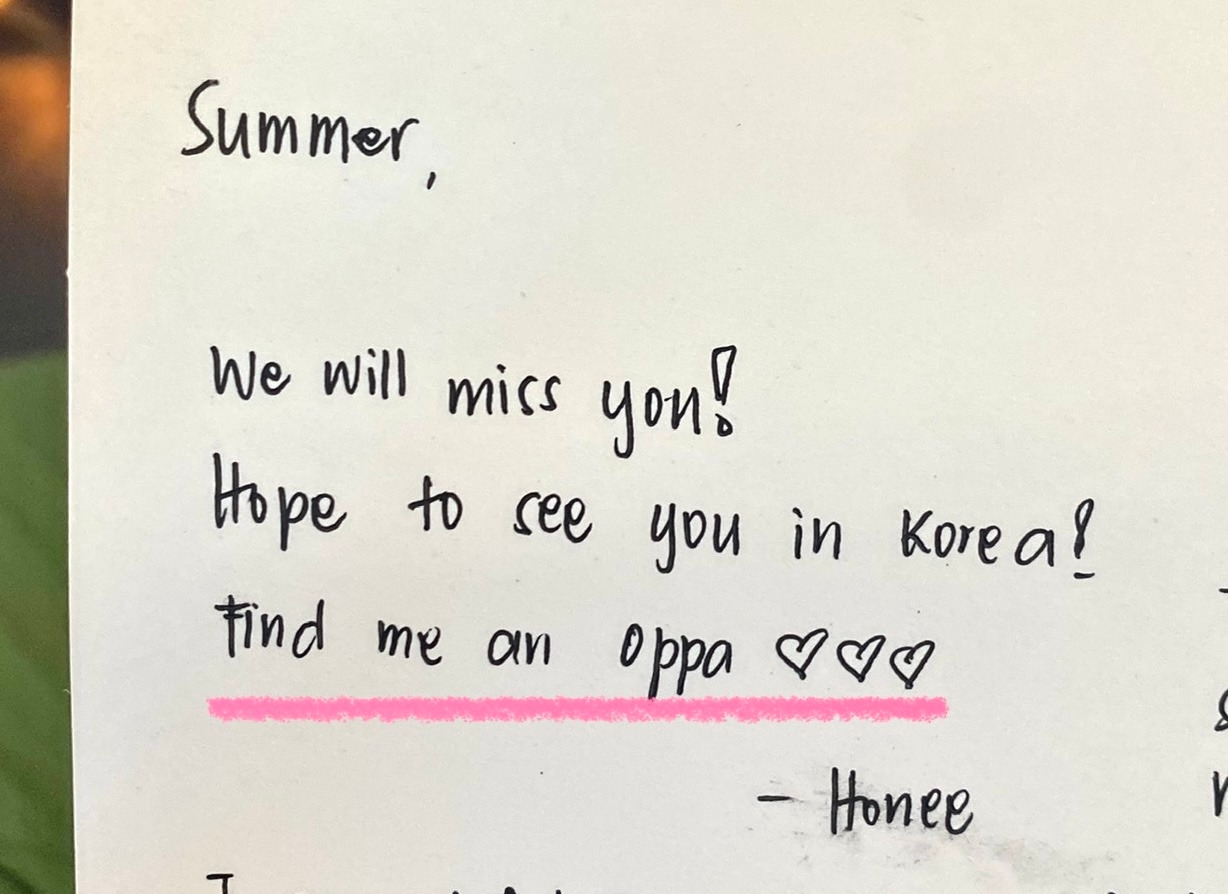 Summer,
We will miss you!
Hope to see you in Korea!
Find me an oppa ♡♡♡
- Honee